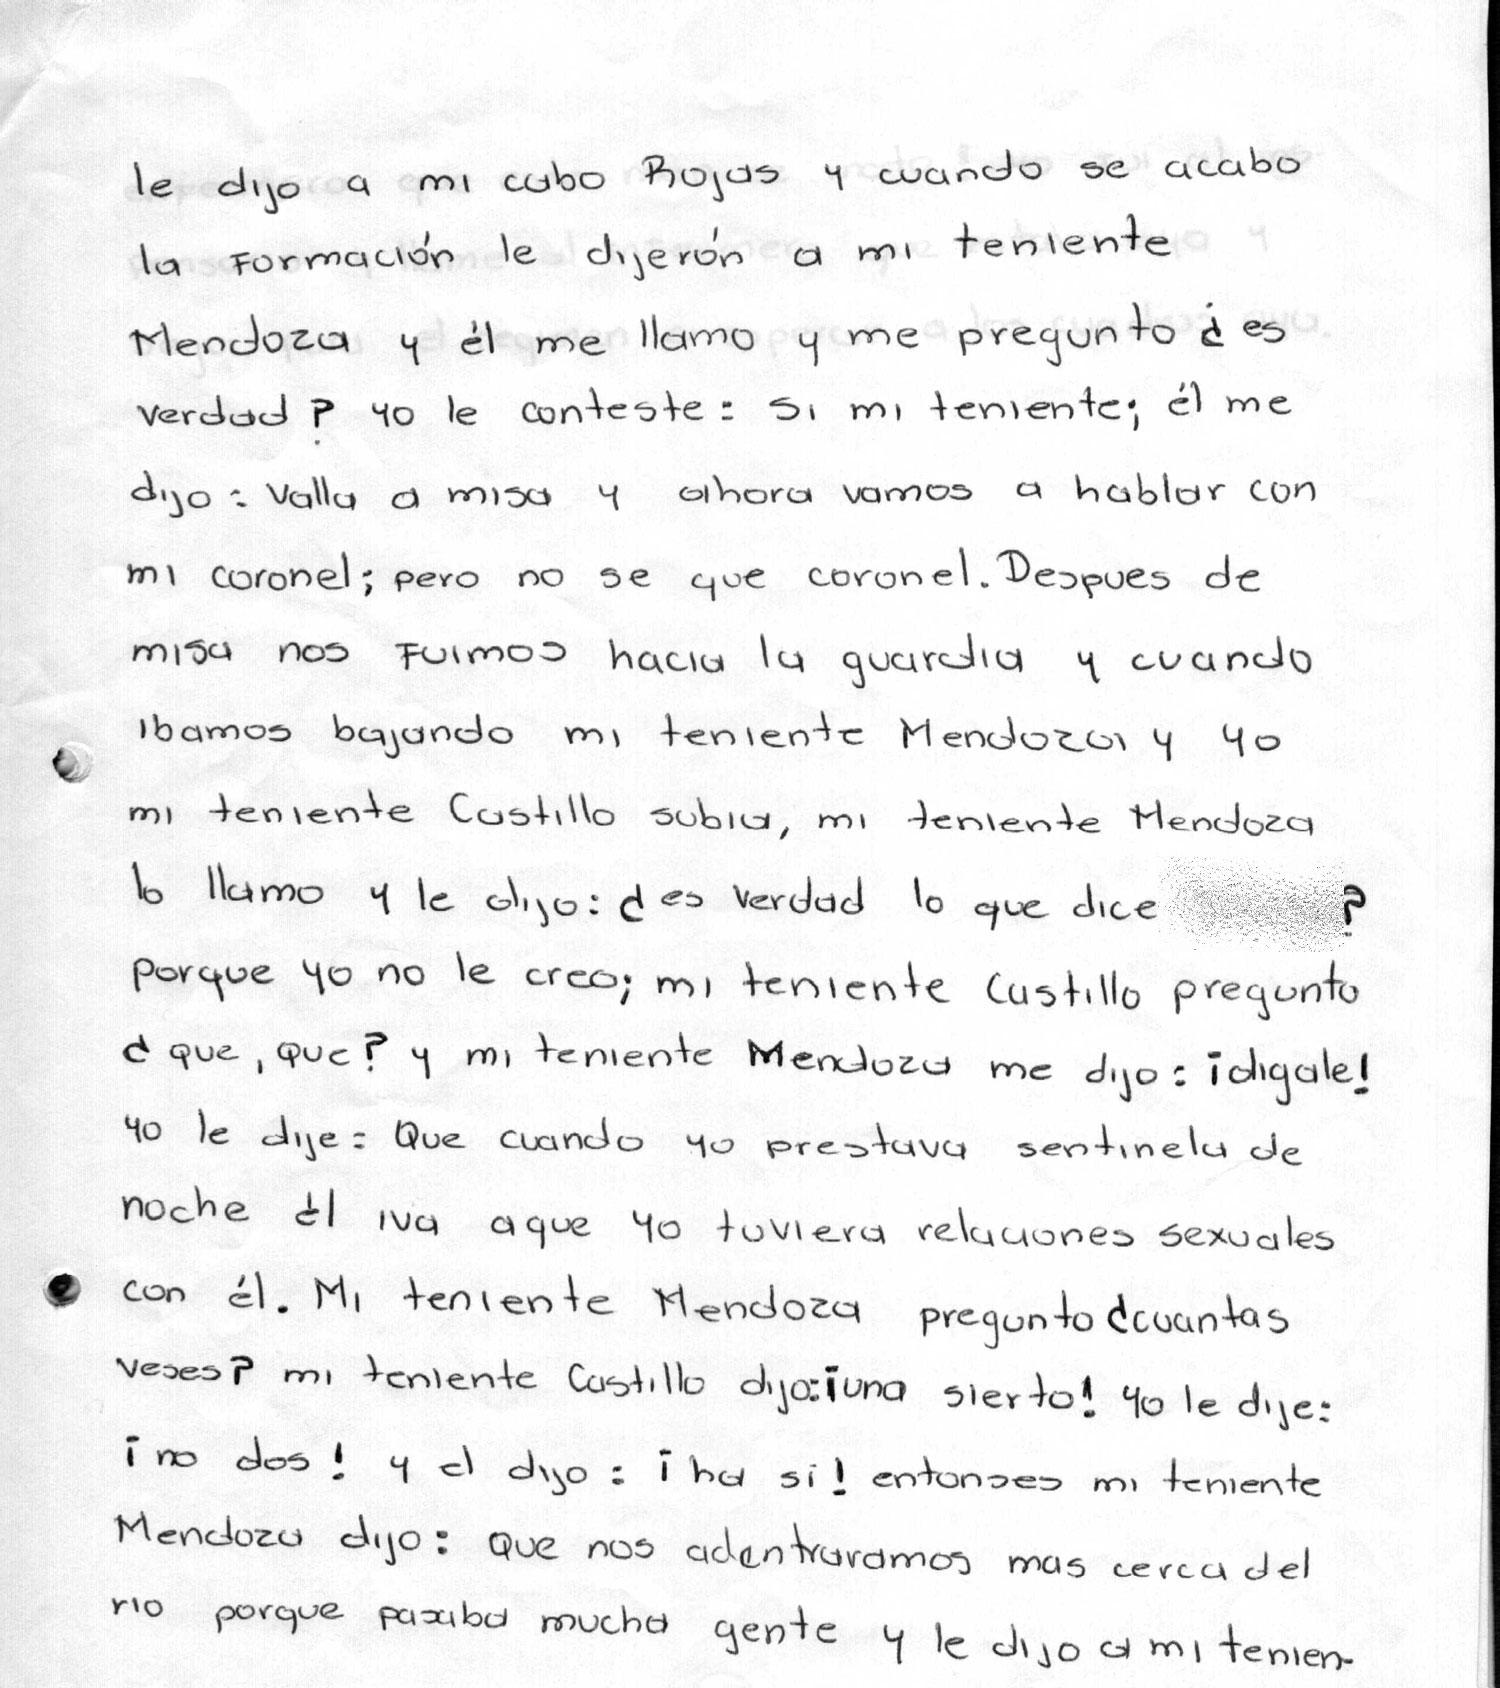 le dijo a mi cabo Rojas y cuando se acabo
la Formación le dijerón a mi teniente
Mendoza y él me llamo y me pregunto ¿es
verdad? yo le conteste: si mi teniente; él me
dijo: Valla a misa y ahora vamos a hablar con
mi coronel; pero no se que coronel. Despues de
misa nos Fuimos hacia la guardia y cuando
ibamos bajando mi teniente Mendoza y yo
mi teniente Castillo subia, mi teniente Mendoza
lo llamo y le dijo: ¿es verdad lo que dice ?
Porque yo no le creo; mi teniente Castillo pregunto
¿que, que? y mi teniente Mendoza me dijo: ¡digale!
yo le dije: Que cuando yo prestava sentinela de
noche él iva aque yo tuviera relaciones sexuales
con él. Mi teniente Mendoza pregunto ¿cuantas
veses? mi teniente Castillo dijo: ¡una sierto! yo le dije:
¡no dos! y el dijo: ¡ha si! entonses mi teniente
Mendoza dijo: Que nos adentraramos mas cerca del
rio porque pasaba mucha gente y le dijo a mi tenien-